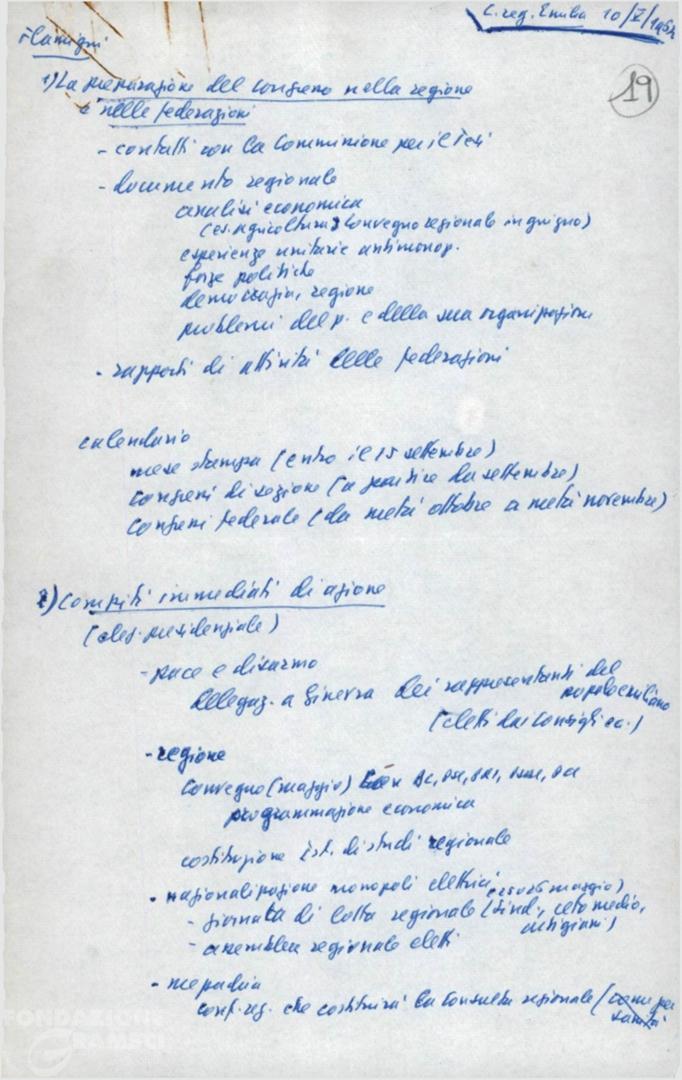 C. reg. Emilia 10/V/1962
Flamigni
19
1) La preparazione del congresso nella regione
e nelle federazioni
- contatti con la Commissione per le Tesi
- documento regionale
analisi economica
(es. agricoltura convegno regionale in giugno)
esperienze unitarie antimonop.
forze politiche
democrazia, regione
problemi del p. e della sua organizzazione
- rapporti di attività delle federazioni
calendario
mese stampa (entro il 15 settembre)
congressi di sezione (a partire da settembre)
congressi federale (da metà ottobre a metà novembre)
2) Compiti immediati di azione
(elez. presidenziale)
- pace e disarmo
delegaz. a Ginevra dei rappresentanti del
popolo emiliano
(eletti dai Consigli ec.)
- regione
convegno (maggio) con
programmazione economica
costituzione Ist. di studi regionale
- nazionalizzazione monopoli elettrici (25 o 26 maggio)
- giornata di lotta regionale (sind., ceto medio,
artigiani)
- assemblea regionale eletti
- mezzadria
conf. reg. che costituirà la Consulta regionale (come per
sanità
FONDAZIONE
GRAMSCI